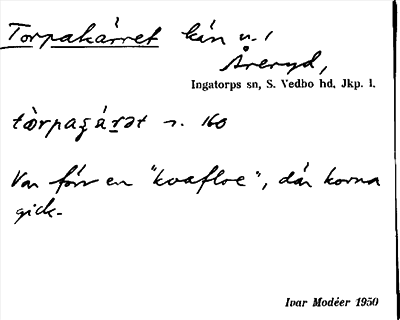 Torpakärret kärr n. /
Åreryd,
Ingatorps sn, S. Vedbo hd, Jkp. l.
s. 160
Var förr en "kvafloe", där korna
gick.
Ivar Modéer 1950